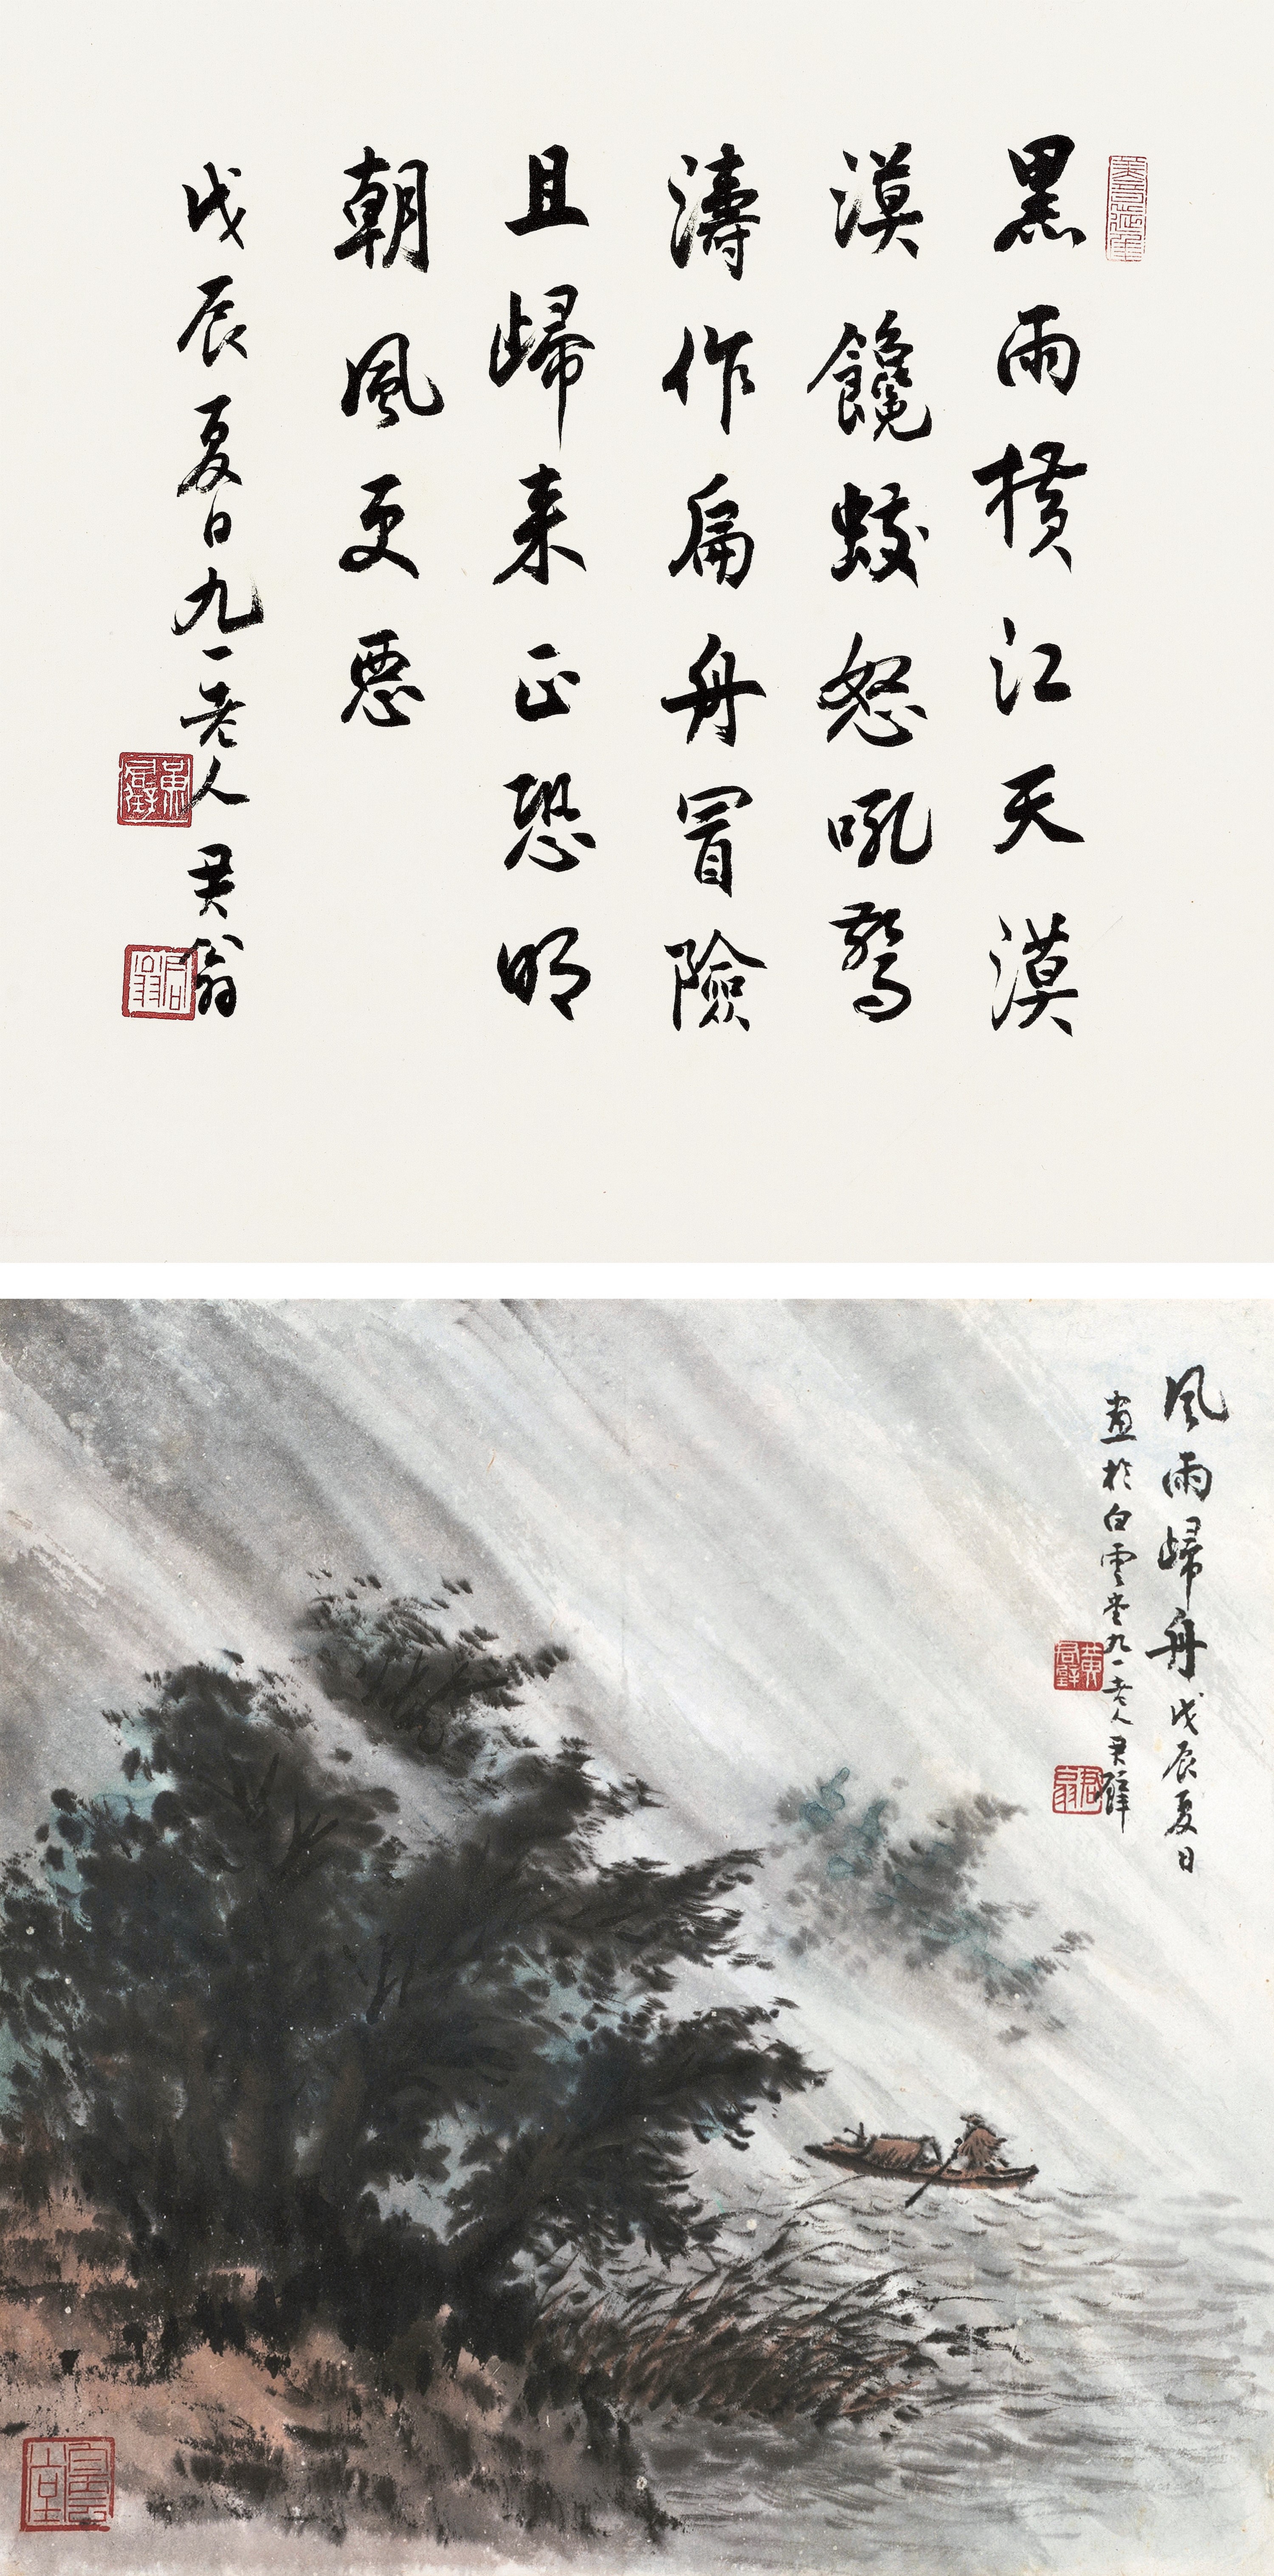 黑雨横江天漠
漠饞蛟怒吼驚
濤作扁舟冒險
且歸来正恐明
朝風更惡
戊辰夏日九一老人君翁
黃君璧
君翁
風雨歸舟戊辰夏日
畫於白雲堂九一老人君璧
黃君璧
君翁
白雲堂